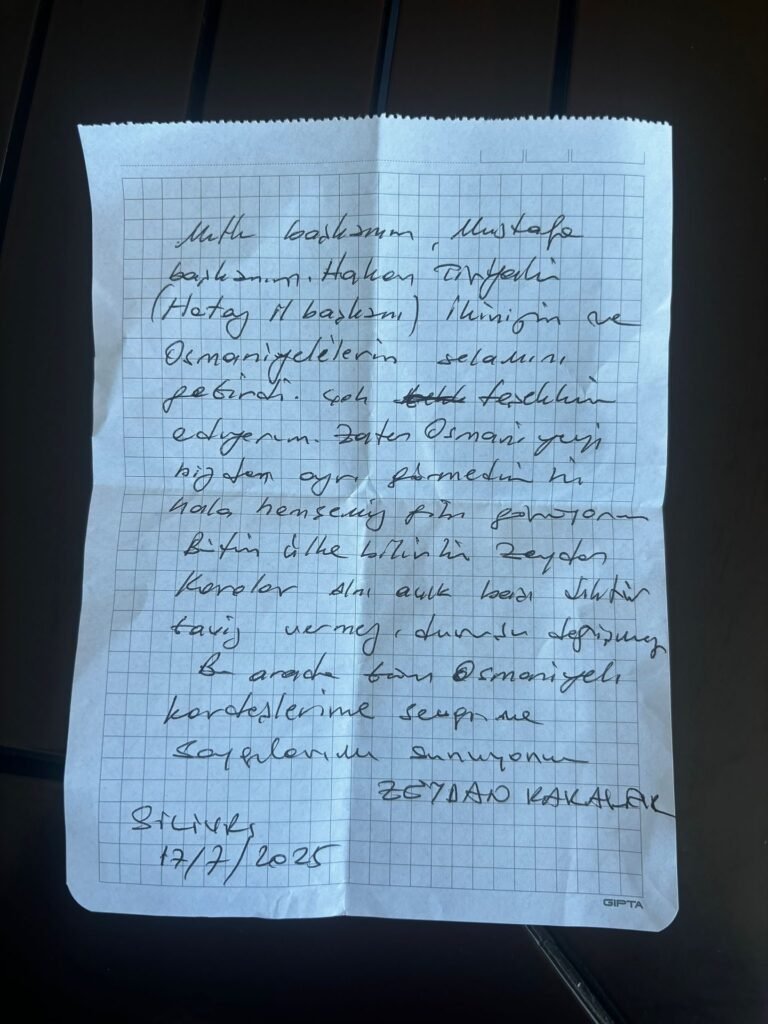 Mutlu başkanım, Mustafa
başkanım. Hakan Tiryaki
(Hatay İl başkanı) ikinizin ve
Osmaniyelilerin selamını
getirdi. çok teşekkür
ediyorum. Zaten Osmaniyeyi
bizden ayrı görmedim ki
hala hemşeriy gibi görüyorum
Bütün ülke bilirki Zeydan
Karalar alnı açık başı diktir
taviz vermez, duruşu değişmez
Bu arada tüm Osmaniyeli
kardeşlerime sevgi ve
saygılarımı sunuyorum
ZEYDAN KARALAR
SİLİVRİ
17/7/2025
GIPTA